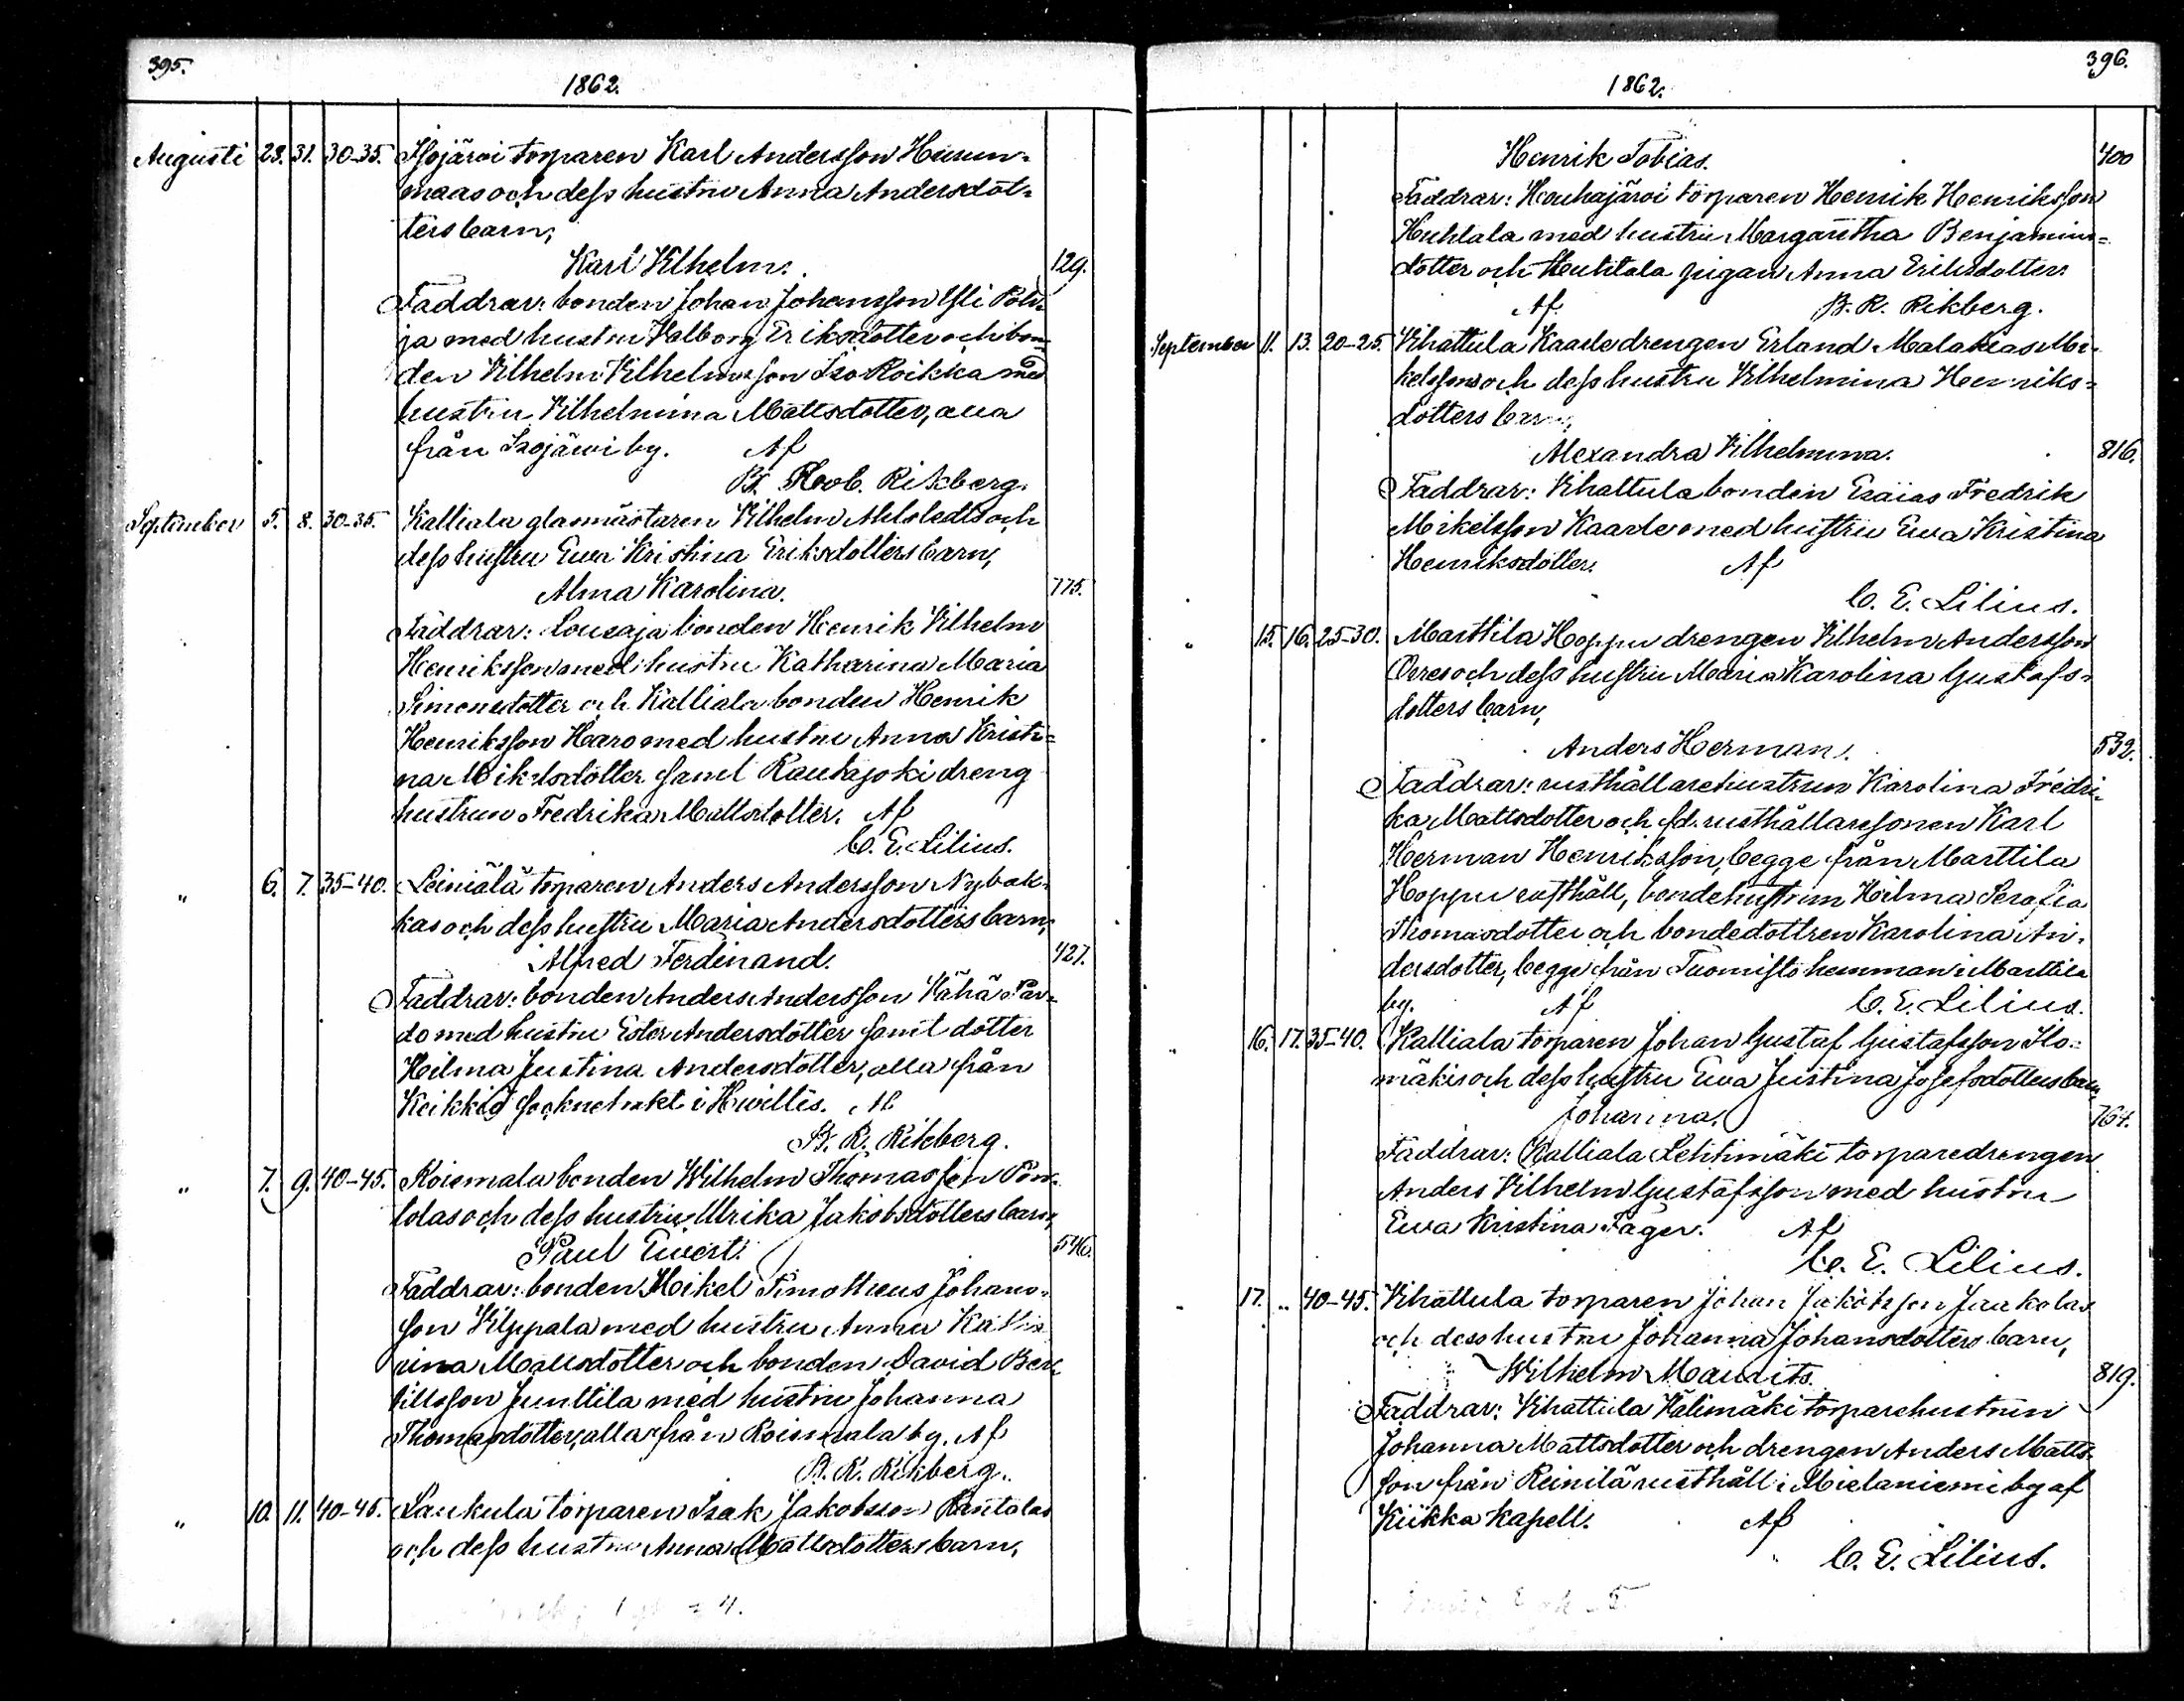 395.
1862.
Augusti 28. 31. 30-35. Isojärvi torparen Karl Andersson Hurun-
maas och dess hustru Anna Andersdot-
ters barn,
Karl Vilhelm. 129.
Faddrar: bonden Johan Johansson Yli Pohi-
ja med hustru Valborg Eriksdotter och bon-
den Vilhelm Vilhelmsson Iso Roikka med
hustru Vilhelmina Mattsdotter, alla
från Isojärvi by. Af
Fr. Rob. Rikberg.
September 5. 8. 30-35. Kalliala glasmästaren Vilhelm Ahlstedts och
dess hustru Eva Kristina Eriksdotters barn,
Alma Karolina. 775.
Faddrar: Lousaja bonden Henrik Vilhelm
Henriksson med hustru Katharina Maria
Simonsdotter och Kalliala bonden Henrik
Henriksson Haro med hustru Anna Kristi-
na Mikelsdotter samt Rautajoki dreng
hustrun Fredrika Mattsdotter. Af
C. E. Lilius.
" 6. 7. 35-40. Leiniälä torparen Anders Andersson Nybak-
kas och dess hustru Maria Andersdotters barn,
Alfred Ferdinand. 427.
Faddrar: bonden Anders Andersson Vähä Par-
do med hustru Ester Andersdotter samt dotter
Hilma Justina Andersdotter, alla från
Keikkis socknetrakt i Hvittis. Af
Fr. R. Rikberg.
" 7. 9. 40-45. Roismala bonden Wilhelm Thomasson
och dess hustru Ulrika Jakobsdotters barn,
Paul Evert. 546.
Faddrar: bonden Mikel Timotheus Johans-
son Vilppala med hustru Anna Katha-
rina Mattsdotter och bonden David Ber-
tillsson Junttila med hustru Johanna
Thomasdotter, alla från Roismala by. Af
Fr. R. Rikberg.
" 10. 11. 40-45. Laukula torparen Isak Jakobsson Rantalas
och dess hustru Anna Mattsdotters barn,
396.
1862.
Henrik Tobias. 400
Faddrar: Houhajärvi torparen Henrik Henriksson
Huhtala med hustru Margaretha Benjamins-
dotter och Huhtala pigan Anna Eriksdotter.
Af Fr. R. Rikberg.
September 11. 13. 20-25. Vihattula Kaarle drengen Erland Malakias Mi-
kelssons och dess hustru Vilhelmina Henriks-
dotters barn,
Alexandra Vilhelmina. 816.
Faddrar: Vihattula bonden Esaias Fredrik
Mikelsson Kaarle med hustru Eva Kristina
Henriksdotter. Af
C. E. Lilius.
" 15. 16. 25-30. Marttila Hoppu drengen Vilhelm Andersson
och dess hustru Maria Karolina Gustafs-
dotters barn,
Anders Herman. 532.
Faddrar: rusthållarehustrun Karolina Fredri-
ka Mattsdotter och fd. rusthållaresonen Karl
Herman Henriksson, begge från Marttila
Hoppu rusthåll, bondehustrun Hilma Serafia
Thomasdotter och bondedottren Karolina An-
dersdotter, begge från Tuomisto hemman i Marttila
by. Af C. E. Lilius.
" 16. 17. 35-40. Kalliala torparen Johan Gustaf Gustafsson Ilo-
mäkis och dess hustru Eva Justina Josefsdotters barn,
Johanna. 764.
Faddrar: Kalliala Lehtimäki torparedrengen
Anders Vilhelm Gustafsson med hustru
Eva Kristina Fager. Af
C. E. Lilius.
" 17. " 40-45. Vihattula torparen Johan Jakobsson Jaakolas
och dess hustru Johanna Johansdotters barn,
Wilhelm Maurits. 819.
Faddrar: Vihattula Välimäki torparehustrun
Johanna Mattsdotter och drengen Anders Matts-
son från Reinilä rusthåll i Mielaniemi by af
Kiikka kapell. Af
C. E. Lilius.